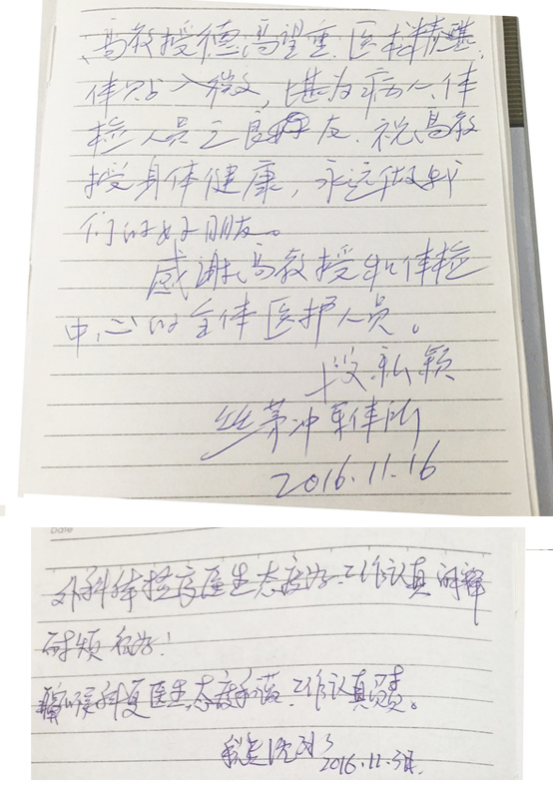 高教授德高望重、医术精湛、
体贴入微，堪为病人、体
检人员之良师益友.祝高教
授身体健康，永远做我
们的好朋友。
感谢高教授和体检
中心的全体医护人员。
段
丝茅冲军休所
2016.11.16
Date
外科体检度医生态度好.工作认真 解释
耐烦 很好!
喉科夏医生,态度和蔼.工作认真负责。
2016.11.